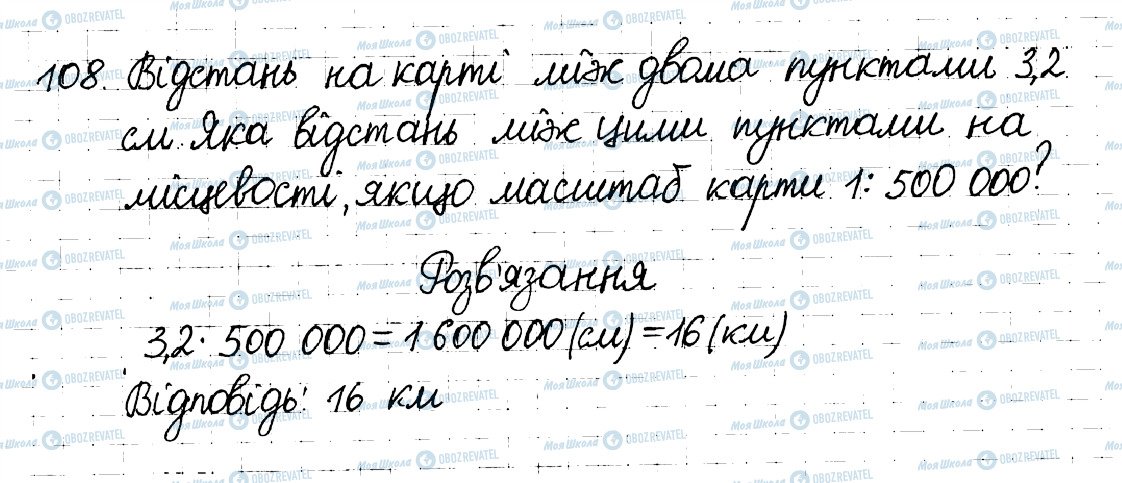 108. Відстань на карті між двома пунктами 3,2
см. Яка відстань між цими пунктами на
місцевості, якщо масштаб карти 1: 500 000?
Розв'язання
3,2· 500 000 = 1 600 000 (см) = 16 (км)
Відповідь: 16 км